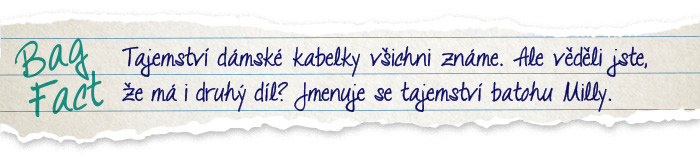 Bag
Fact
Tajemství dámské kabelky všichni známe. Ale věděli jste,
že má i druhý díl? Jmenuje se tajemství batohu Milly.